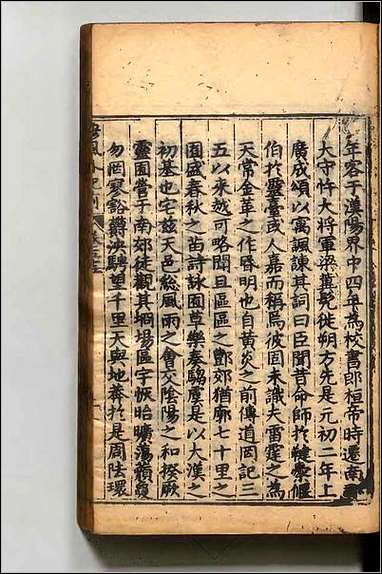 年客于漢陽界中四年為校書郎桓帝時遷南
大守忤大將軍梁冀髡徙朔方先是元初二年上
廣成頌以寓諷諫其詞曰臣聞昔命師於鞬櫜偃
伯於靈臺或人嘉而稱焉彼固未識夫雷霆之為
天常金革之作昏明也自黃炎之前傳道罔記三
五以來越可略聞且區區之酆郊猶廓七十里之
囿盛春秋之苗詩詠囿草樂奏騶虞是以大漢之
初基也宅茲天邑緫風雨之會交陰陽之和揆厥
靈囿營于南郊徒觀其坰場區宇恢胎曠蕩藐敻
勿罔寥豁鬱泱騁望千里天與地莽於是周阹環